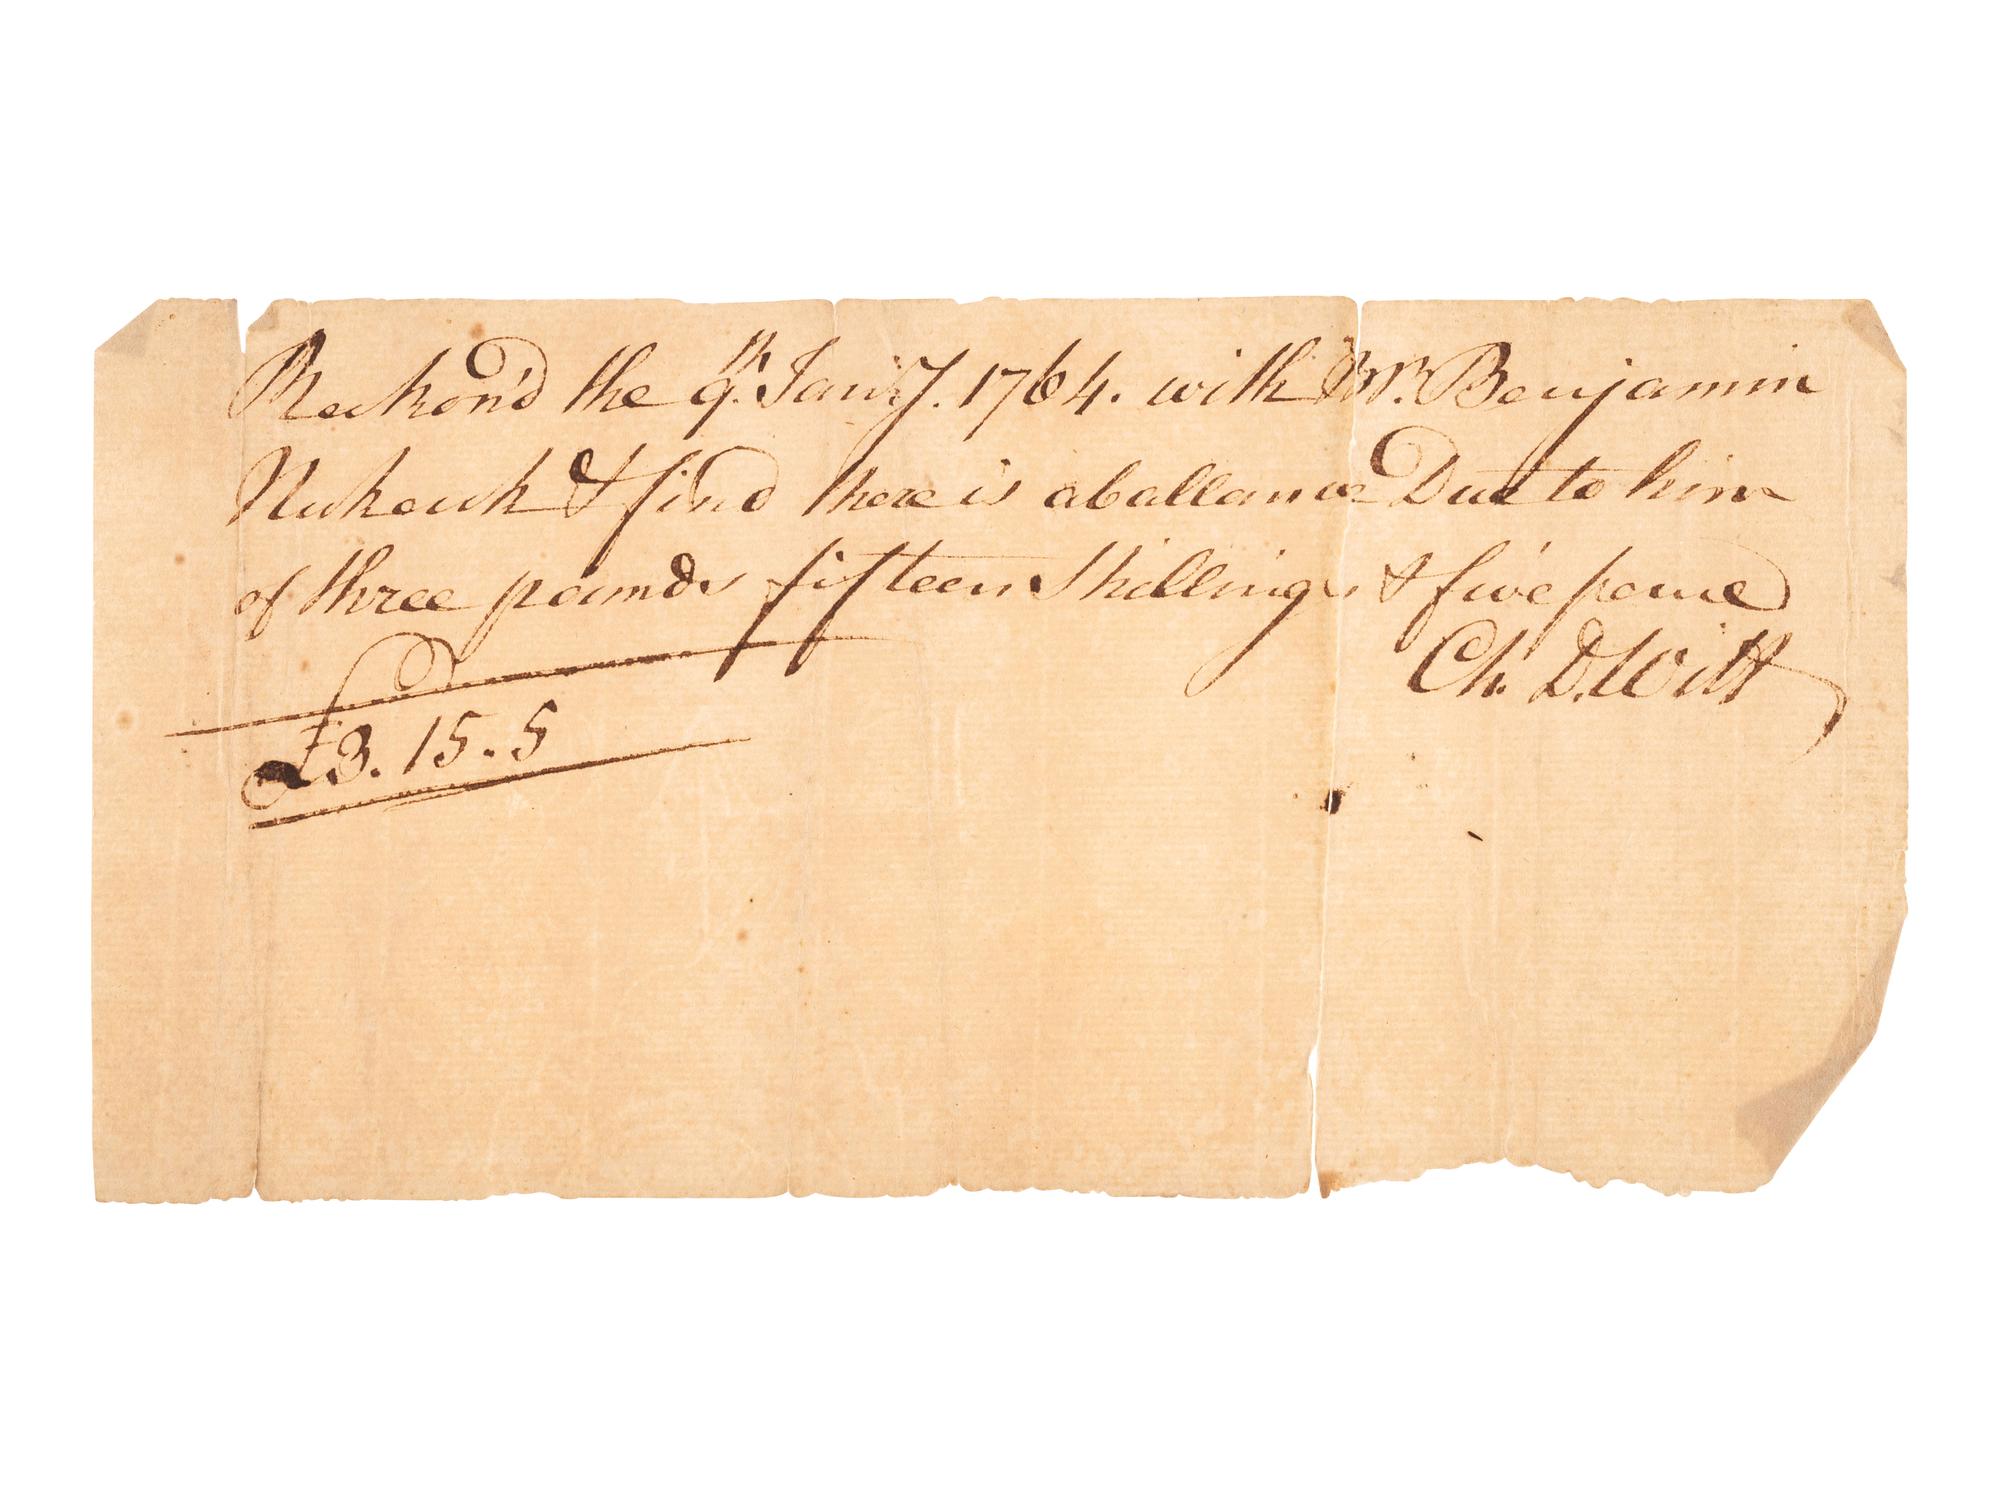 Reckon'd the 9th. Janry. 1764. with Mr. Benjamin
Nukerk & find there is a ballance Due to him
of three pounds fifteen Shillings & five pence
Ch. D. Witt
£3. 15. 5